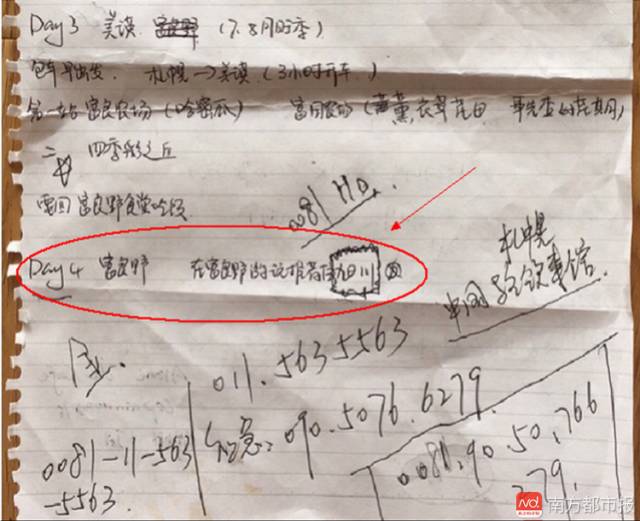 Day 3 美瑛 富良野 (7.8月旺季)
包车早出发. 札幌→美瑛 (3小时开车.)
第一站 富良农场 (哈密瓜) 富田农场 (薰衣草花田 事先查好花期)
二 四季彩之丘
0081 HO.
富良野
Day 4 富良野 在富良野的话推荐住旭川
札幌
中国总领事馆.
011.563 5563
0081-11-563
-5563.
(紧急: 090.5076.6279.
0081.90.50.766
279.
南方都市报